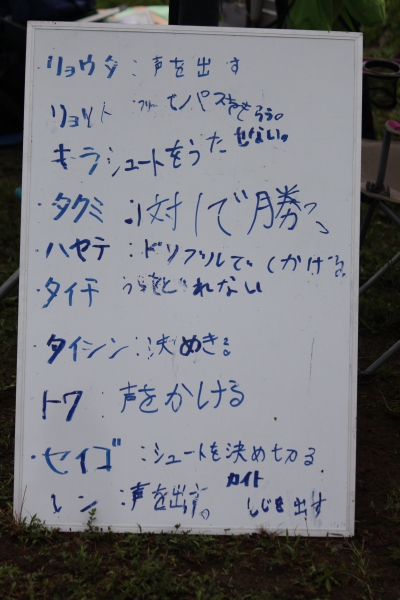 ・リョウタ：声を出す
リョクト：フリーでもパスをもらう。
・キラシュートをうたせない。
・タクミ：1対1で勝つ
・ハヤテ：ドリブルでしかける。
・タイチ
れない
・タイシン：決めきる
・トワ：声をかける
・セイゴ：シュートを決め切る
・レン：声を出す。カイト しじを出す